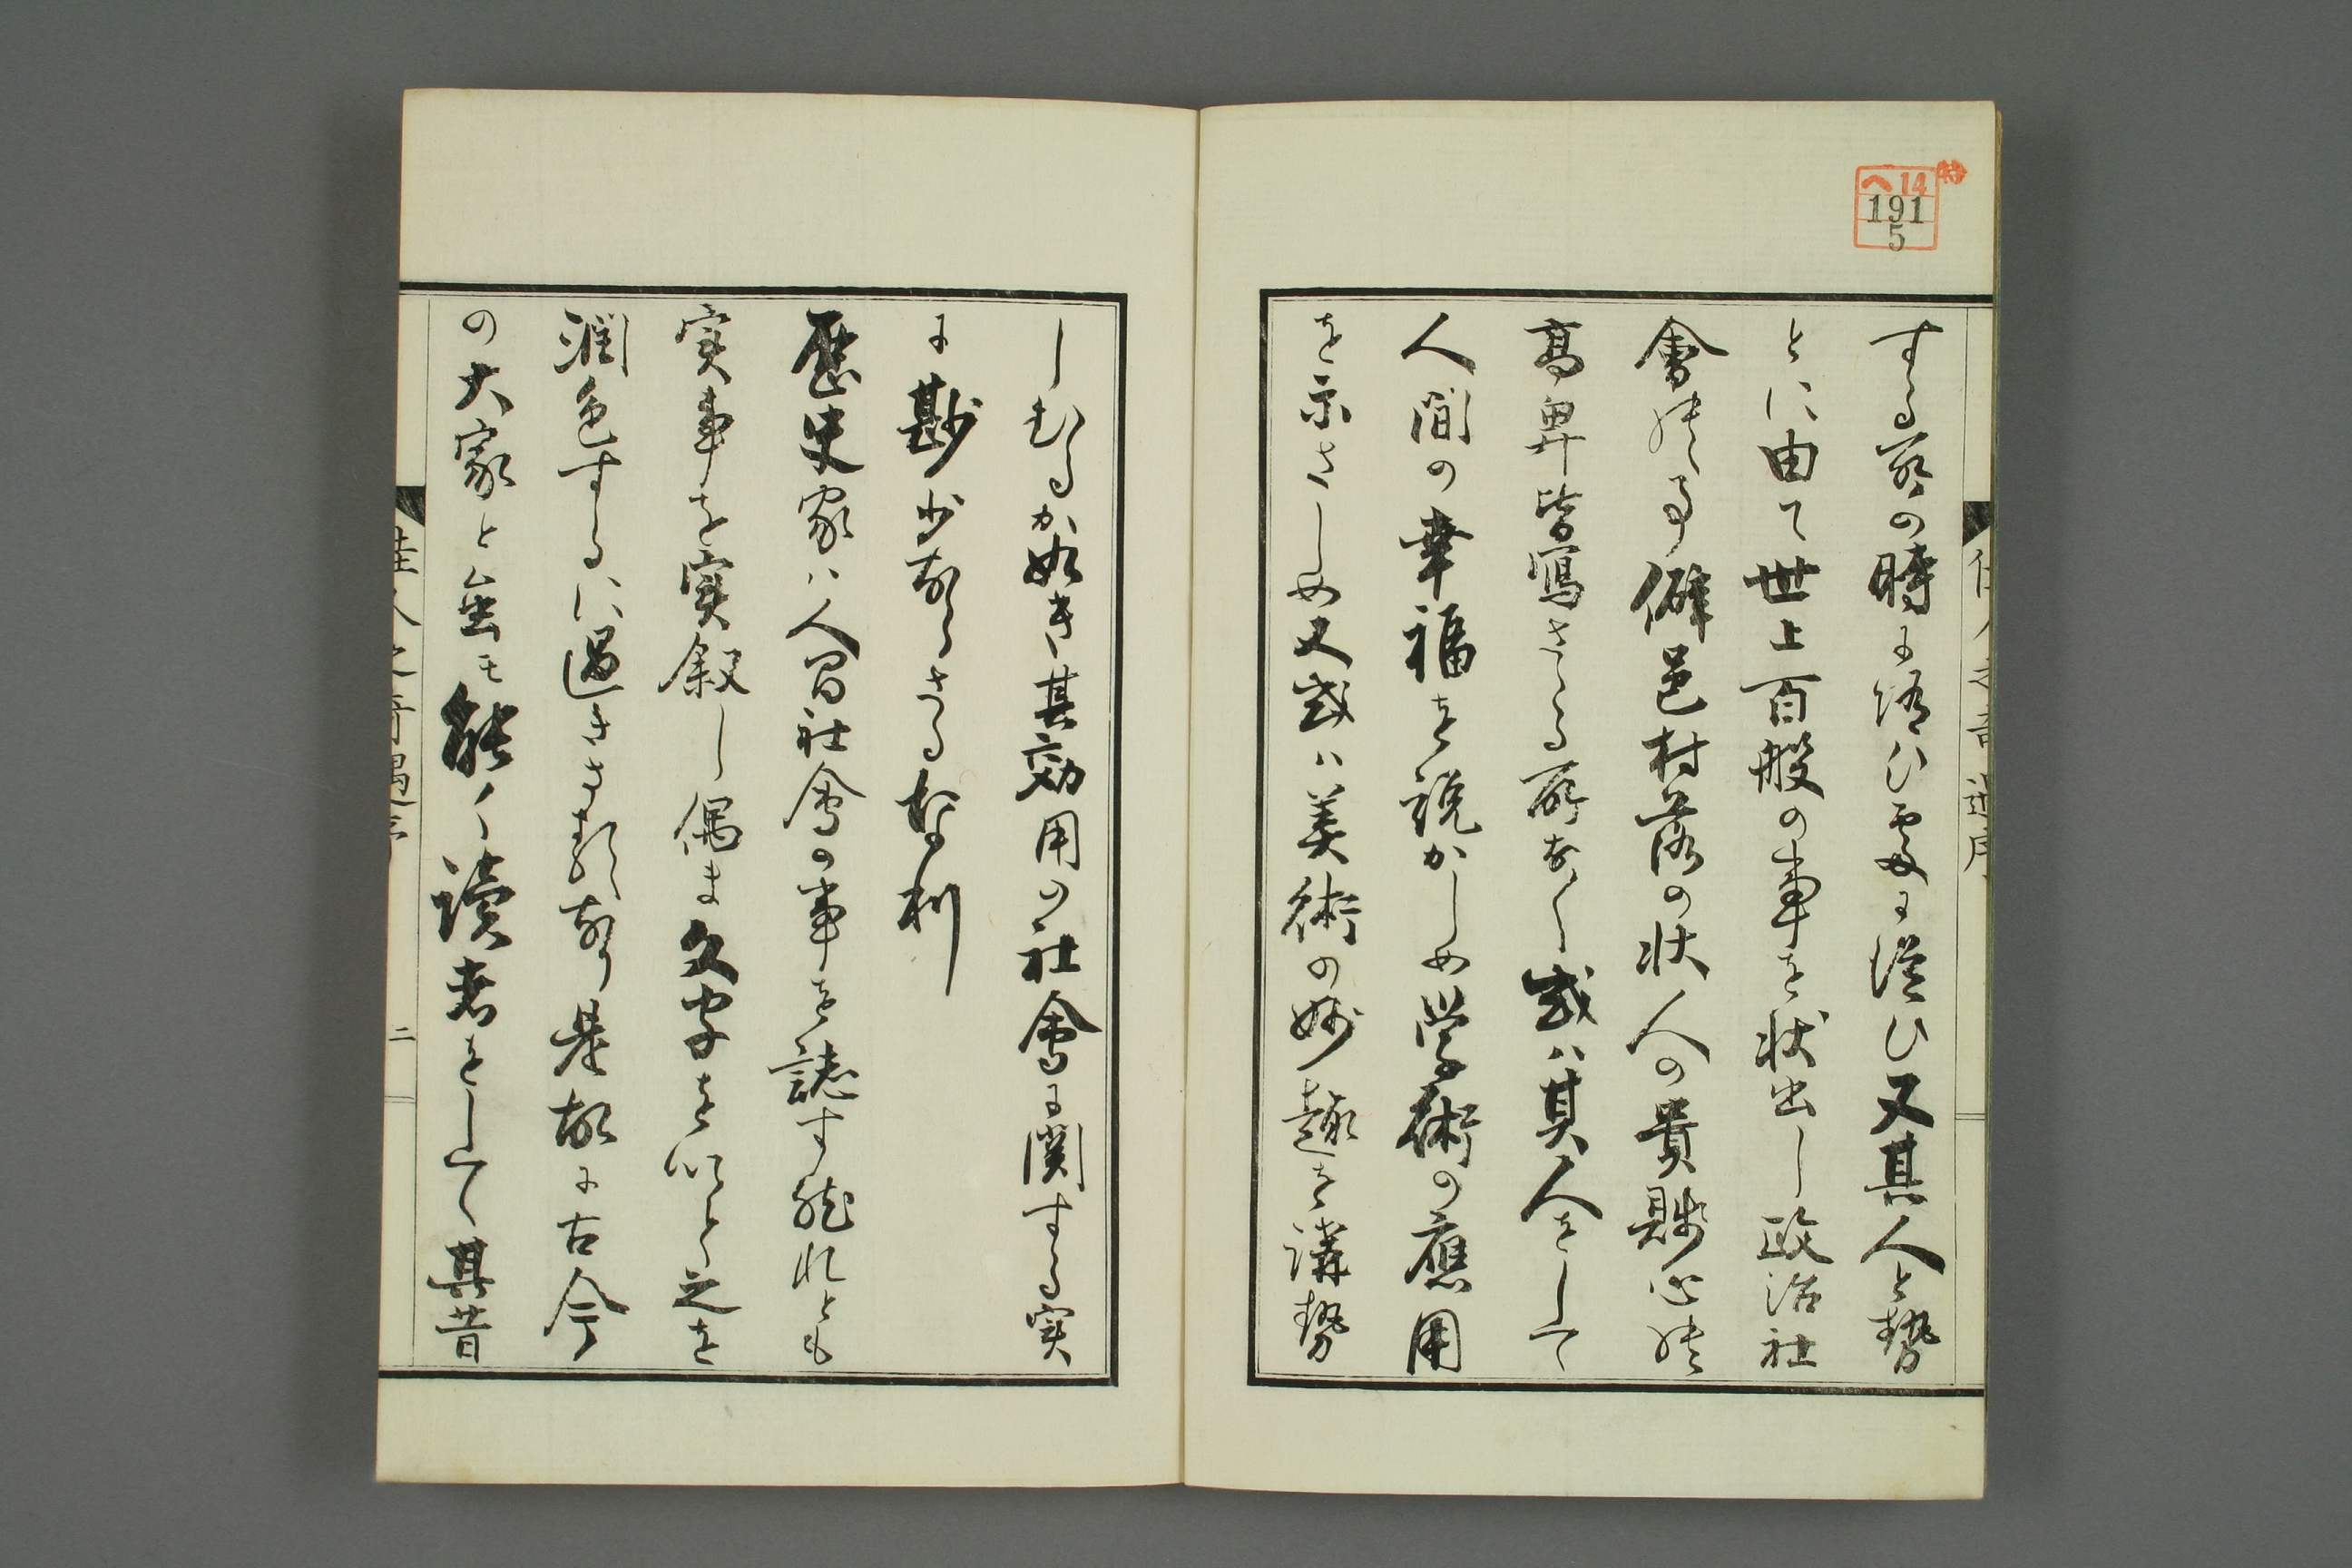 する所の時に循ひ處に従ひ又其人と勢
とに由て世上百般の事を状出し政治社
會の状より僻邑村落の状人の貴賤心の
高卑皆寫さゝる所なく或ハ其人をして
人間の幸福を説かしめ学術の應用
を示さしめ又或ハ美術の妙趣を講勢
しむるか如き其効用の社會に関する実
に尠少ならさるなり
歴史家ハ人間社會の事を誌す雖れとも
実事を実叙し偶ま文字を以て之を
潤色するに過きさるなり是故に古今
の大家と雖モ能く讀者をして其昔
佳人之奇遇序
二
へ14
191
5
特